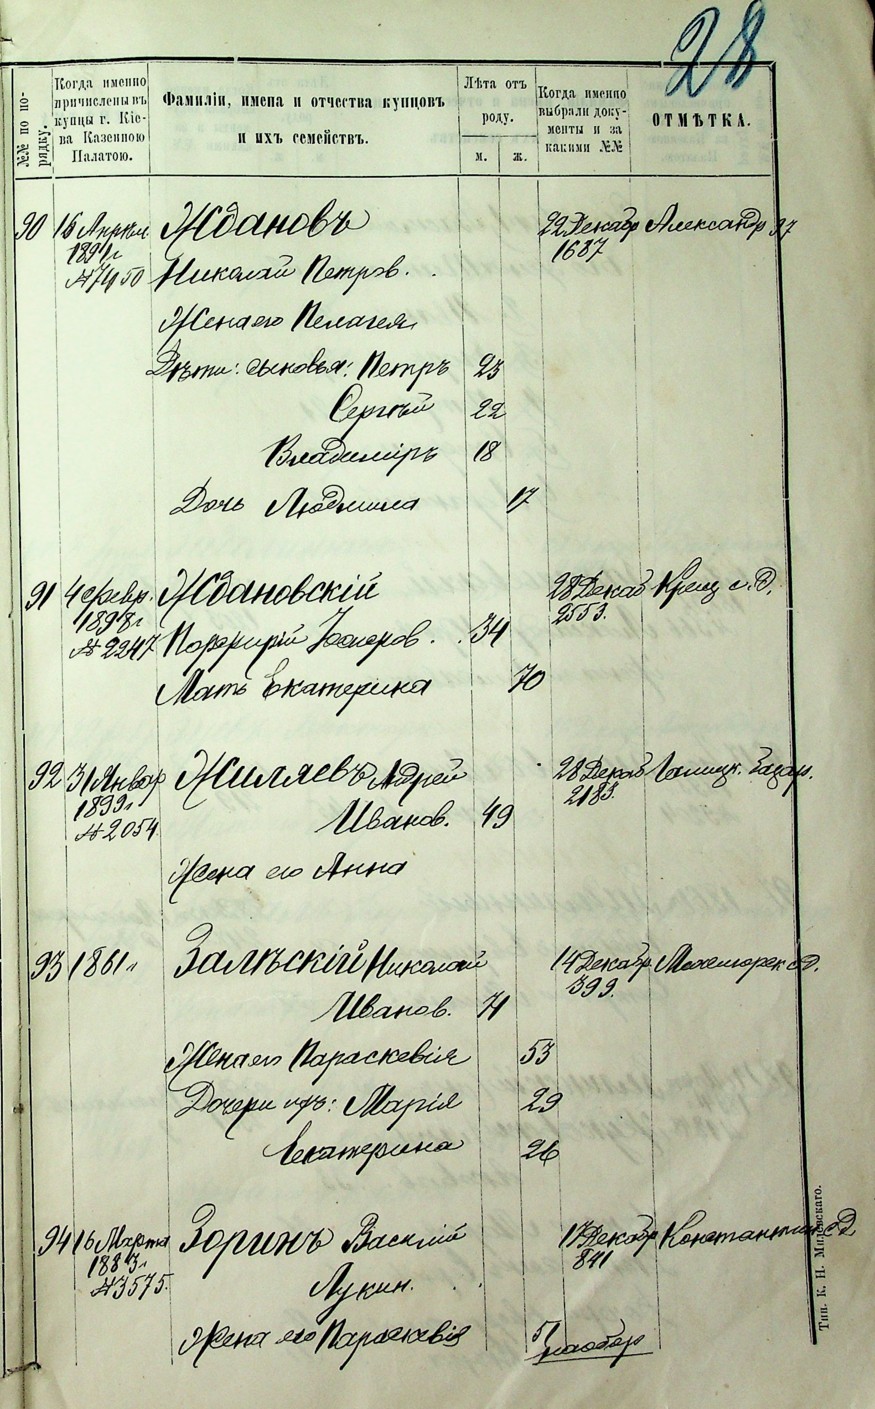 28
№№ по по-
рядку.
Когда именно
причислены въ
купцы г. Кіе-
ва Казенною
Палатою.
Фамиліи, имена и отчества купцовъ
и ихъ семействъ.
Лѣта отъ
роду.
м. ж.
Когда именно
выбрали доку-
менты и за
какими №№
ОТМѢТКА.
90 16 Апрѣл Ждановъ 22 Декабр Александр 37
1891г 1637
№7450 Николай Петров.
Жена его Пелагея
Дѣти: сыновья: Петръ 23
Сергѣй 22
Владиміръ 18
Дочь Людмила 17
91 4 Февр. Ждановскій 28 Декаб Крещ с. д.
1898г 2553.
№2247 Порфирій Гомеров. 34
Мать Екатерина 70
92 31 Январ Жиляевъ Андрей 28 Декаб Галицк. базар.
1899г 2183.
№2054 Иванов. 49
Жена его Анна
93 1861г Залѣскій Николай 14 Декабр с. д.
399.
Иванов. 71
Жена его Параскевія 53
Дочери ихъ: Марія 29
Екатерина 26
94 16 Марта Зоринъ Василій 17 Декабр Константин с. д.
1883г 841
№3575. Лукин.
Жена его Параскевія 51
Тип. К. Н. Милевскаго.